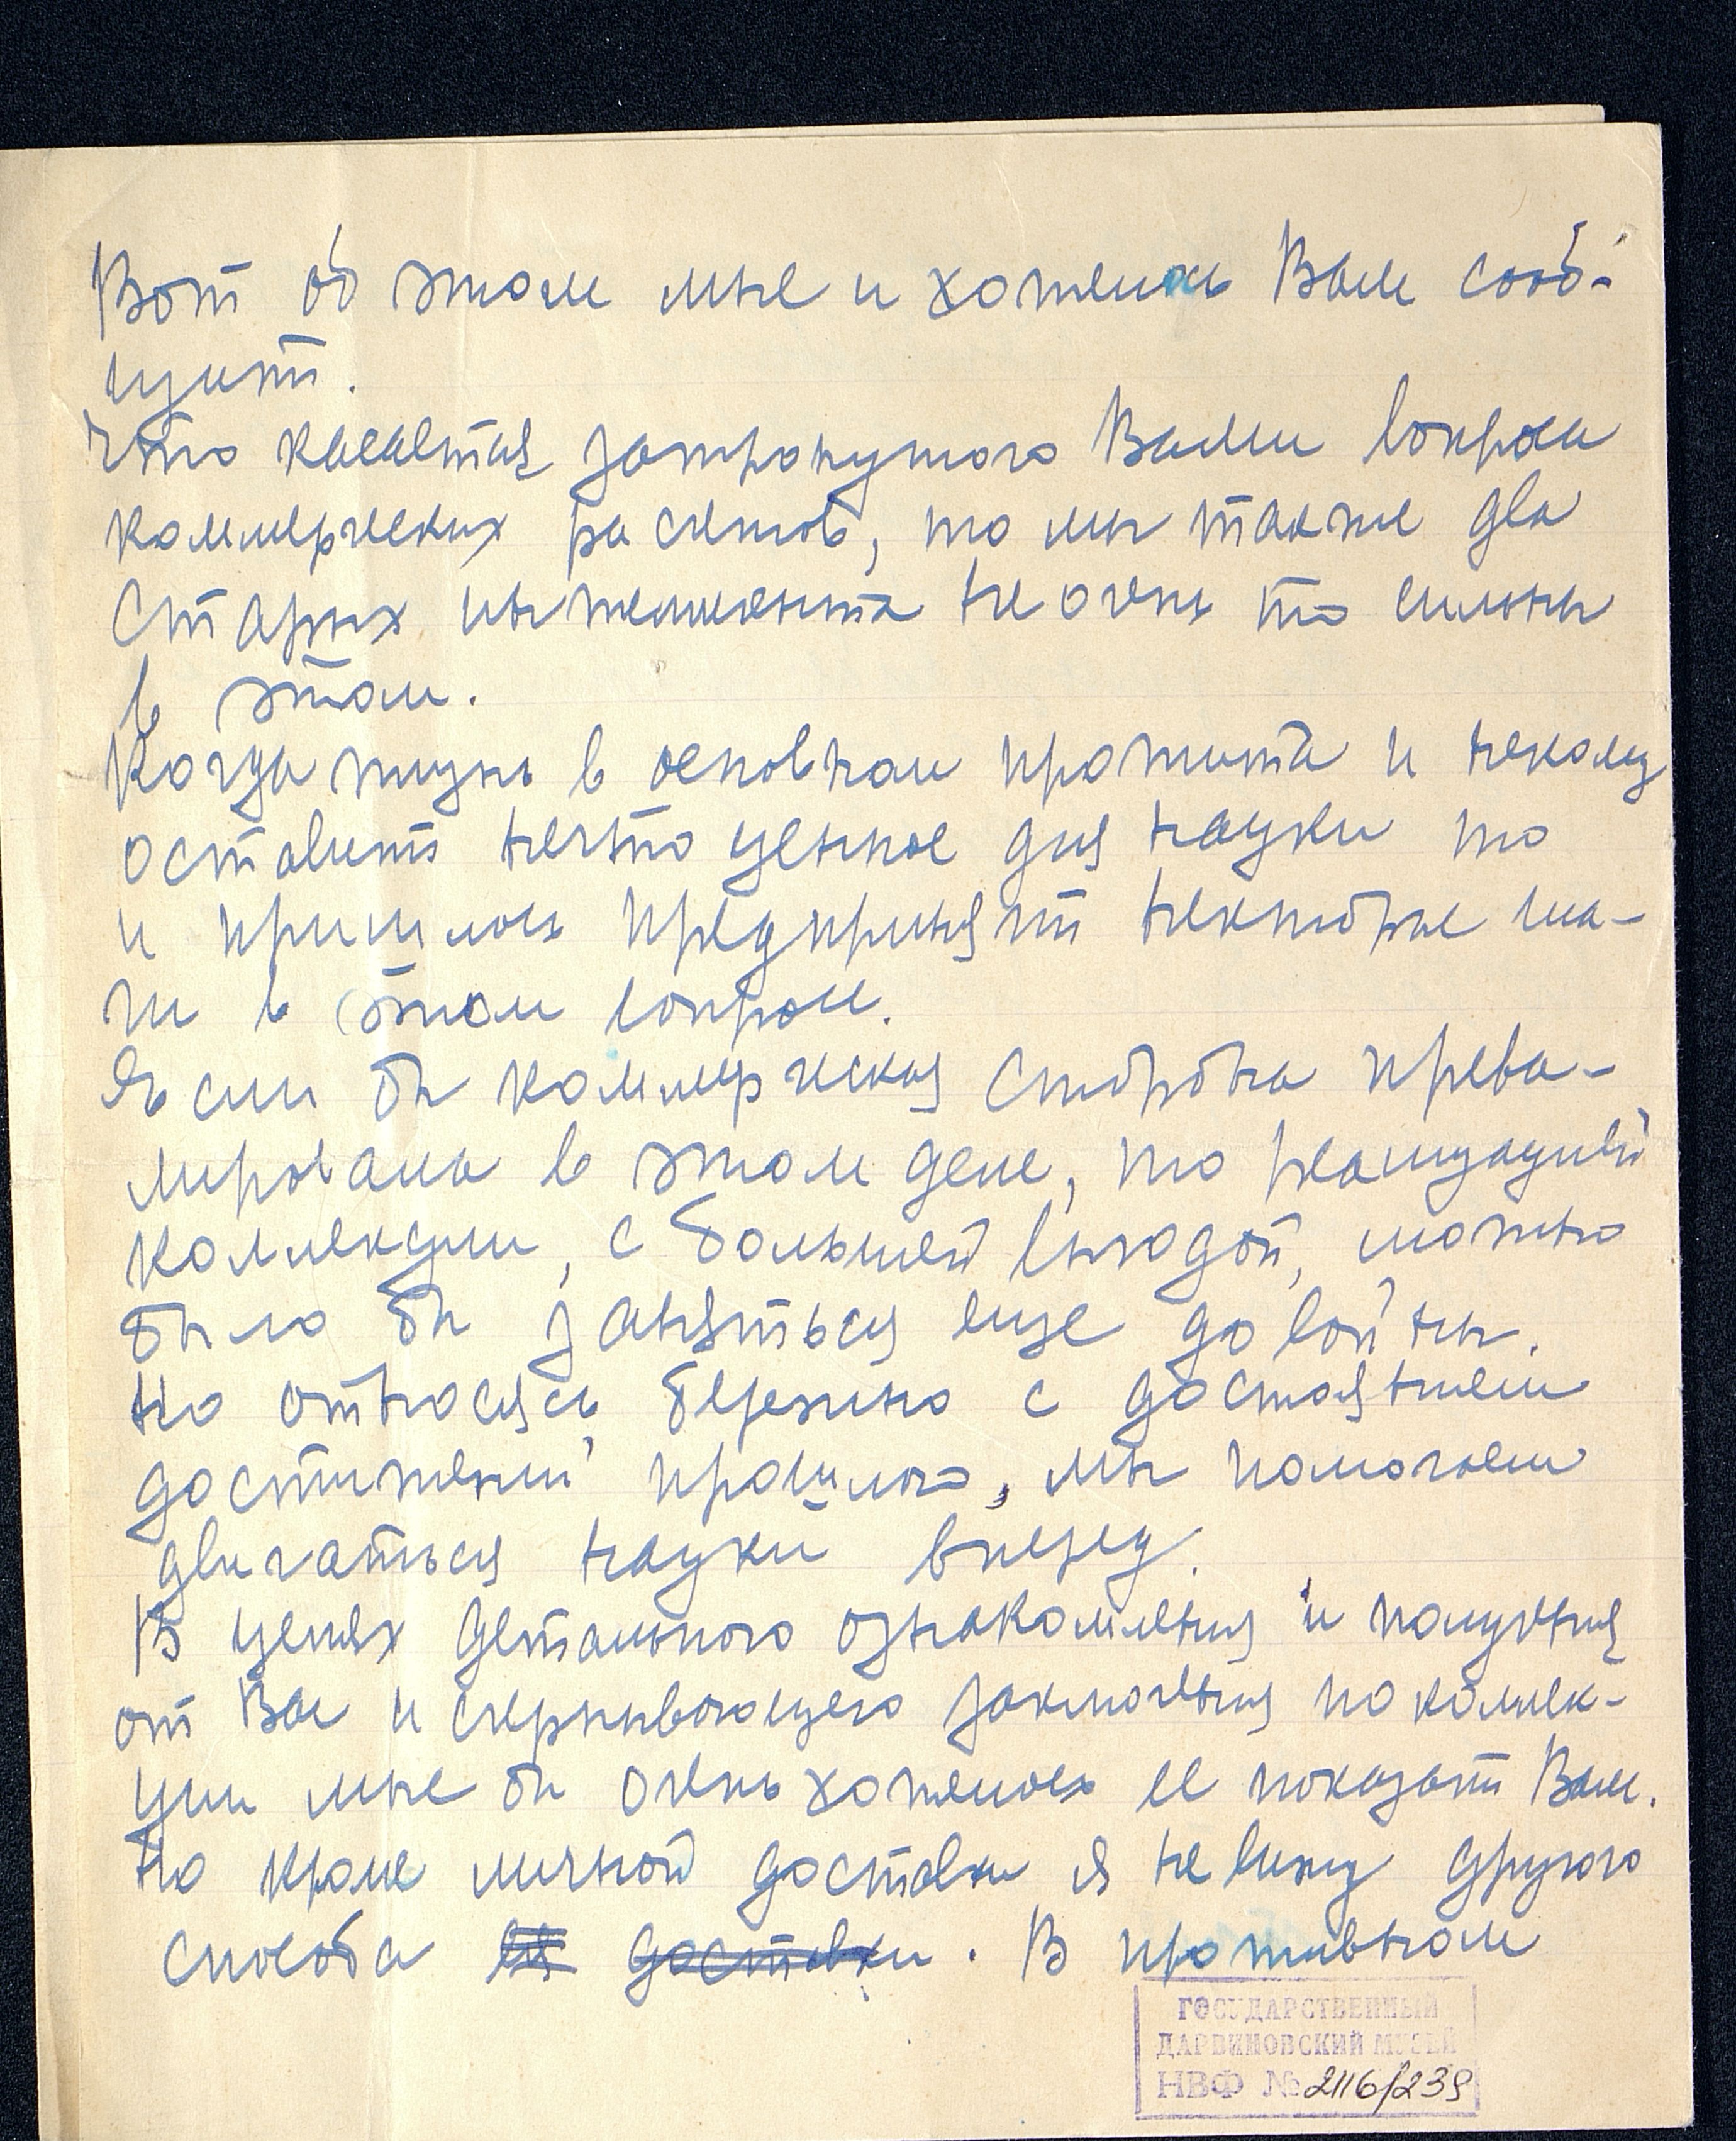 Вот об этом мне и хотелось Вам сооб-
щить.
Что касается затронутого Вами вопроса
коммерческих расчетов, то мы также два
старых инженера не очень то сильны
в этом.
Когда жизнь в основном прожита и некому
оставить нечто ценное для науки то
и пришлось предпринять некторые ша-
ги в этом вопросе.
Если бы коммерческая сторона прева-
лировала в этом деле, то реализацией
коллекции, с большей выгодой, можно
было бы заняться еще до войны.
Но относясь бережно с достоянием
достижений прошлого, мы помогаем
двигаться науки вперед.
В целях детального ознакомления и получения
от Вас и счерпывающего заключения по коллек-
ции мне бы очень хотелось ее показать Вам.
Но кроме личной доставки я не вижу другого
способа ее доставки. В противном
ГОСУДАРСТВЕННЫЙ
ДАРВИНОВСКИЙ МУЗЕЙ
НВФ № 2116/239